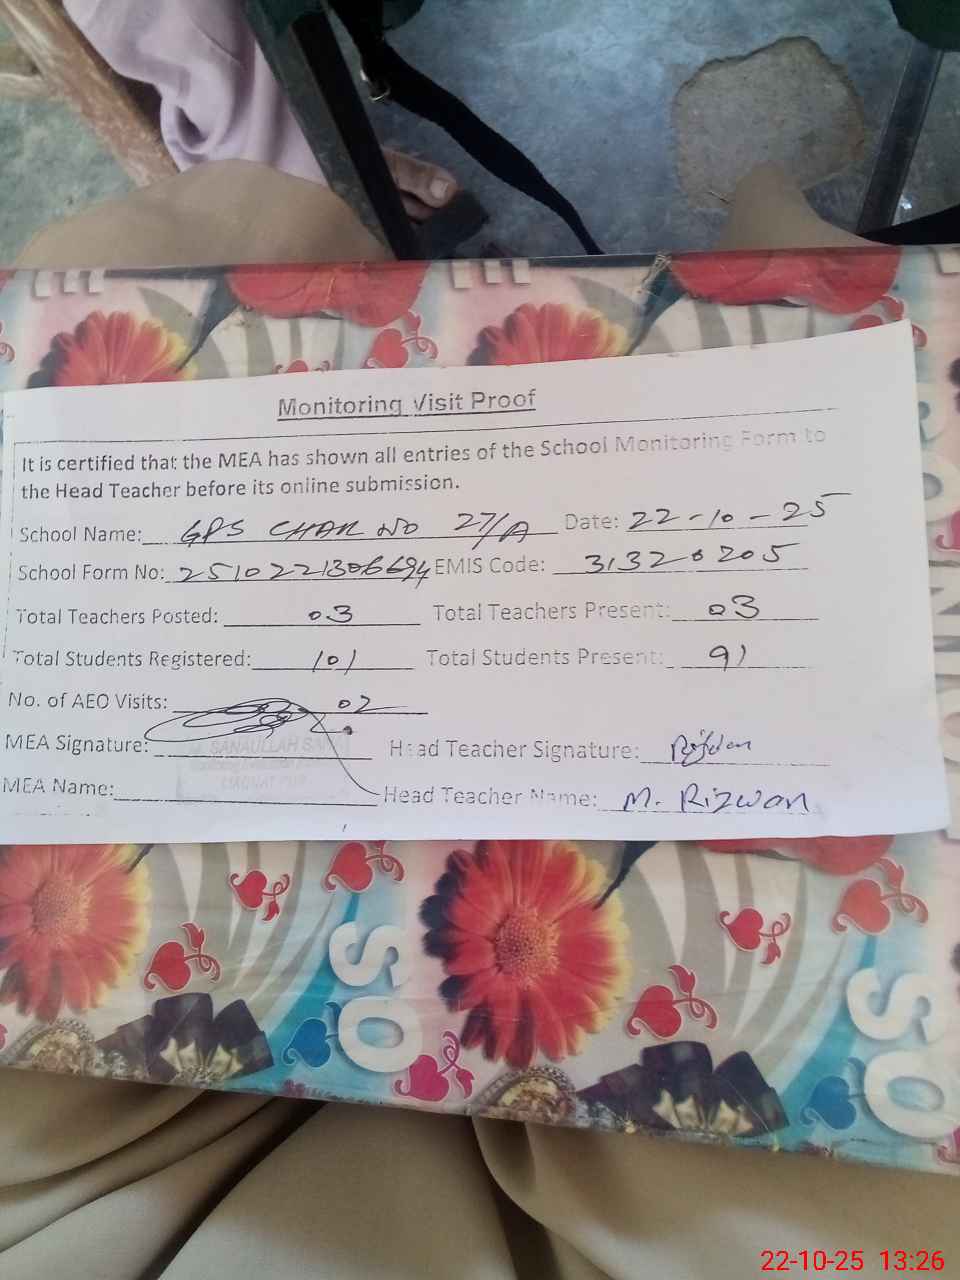 Monitoring Visit Proof
It is certified that the MEA has shown all entries of the School Monitoring Form to
the Head Teacher before its online submission.
School Name: GPS CHAK NO 27/A Date: 22-10-25
School Form No: 2510221306694 EMIS Code: 31320205
Total Teachers Posted: 03 Total Teachers Present: 03
Total Students Registered: 101 Total Students Present: 91
No. of AEO Visits: 02
MEA Signature: SANAULLAH Head Teacher Signature: Rizwan
MEA Name: Head Teacher Name: M. Rizwan
SO
SO
22-10-25 13:26